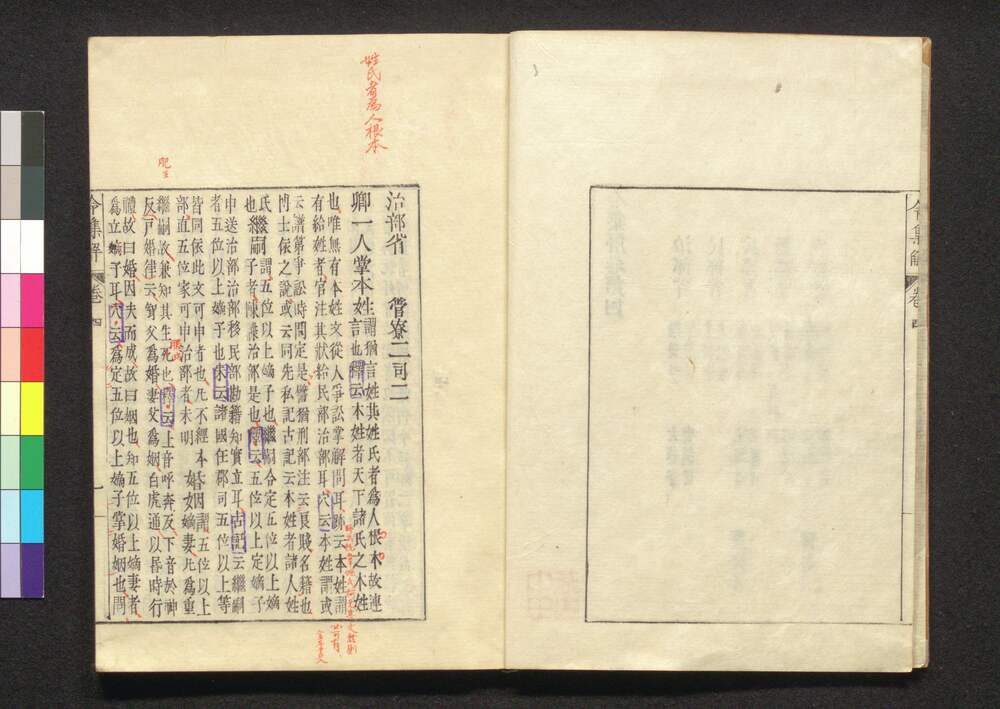 令集解 卷四
姓氏者為人根本
治部省 管寮二司二
卿一人掌本姓謂猶言姓其姓氏者為人根本故連
言也釋云本姓者天下諸氏之本姓
也唯無有本姓文從人爭訟掌解問耳跡云本姓謂
有給姓者官注其狀給民部治部耳穴云本姓謂或
云譜第爭訟時問定是譬猶刑部注云良賤名籍也
博士依之說或云同先私記古記云本姓者諸人姓
氏繼嗣謂五位以上嫡子也繼嗣令定五位以上嫡
也繼嗣子者陳牒治部是也釋云五位以上定嫡子
申送治部治部移民部勘籍知實立耳古記云繼嗣
者五位以上嫡子也朱云諸國在郡司五位以上等
皆同依此文可申者也凡不經本婚因謂五位以上
部直五位家可申治部者未明 女嫡妻凡為重
繼嗣故兼知其生死也釋云上音呼奔反下音於神
反戸婚律云聟父為婚妻父為姻白虎通以昏時行
禮故曰婚因夫而成故曰姻也知五位以上嫡妻者
為立嫡子耳穴云為定五位以上嫡子掌婚姻也問
令集解 卷四